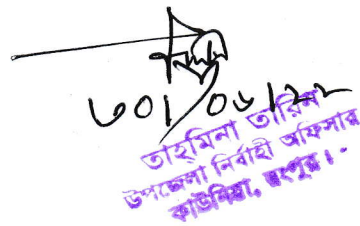 ৩০/০৬/২২
তাহমিনা তারিন
উপজেলা নির্বাহী অফিসার
কাউনিয়া, রংপুর।